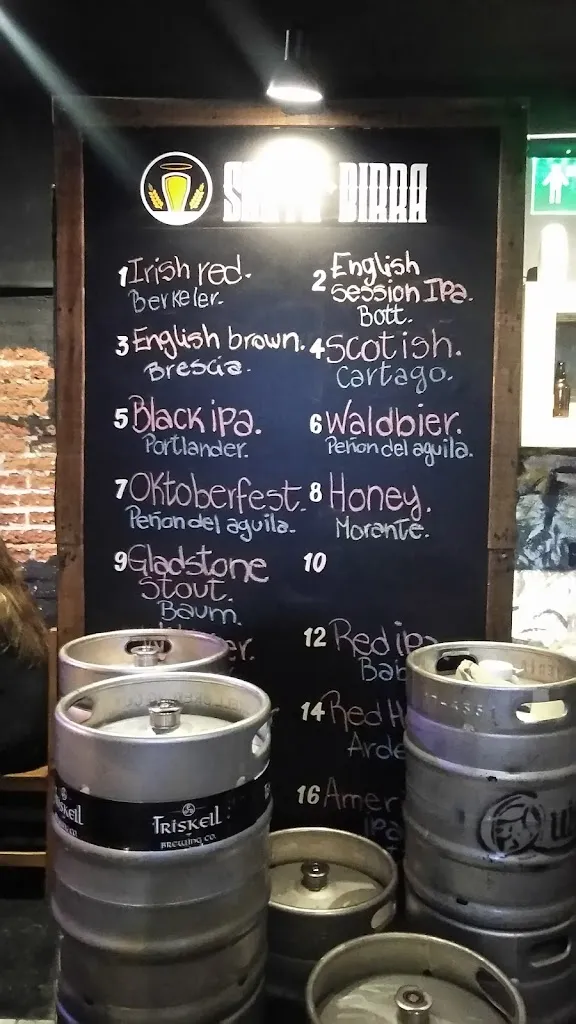 BIRRA
1 Irish red.
Berkeler.
2 English
session Ipa.
Bott.
3 English brown.
Brescia.
4 Scotish.
Cartago.
5 Black ipa.
Portlander.
6 Waldbier.
Peñon del aguila.
7 Oktoberfest.
Peñon del aguila.
8 Honey.
Morante.
9 Gladstone
Stout.
Baum.
10
12 Red ipa
14 Red
16
TRISKELL
BREWING CO.